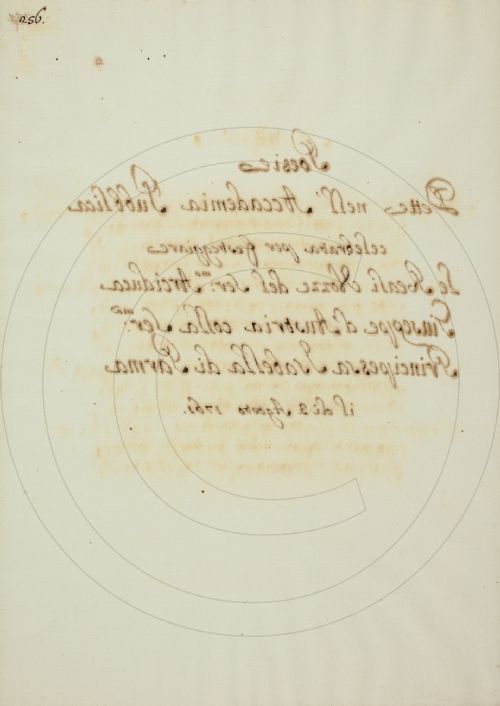 256.
Poesie
Dette nell' Accademia Pubblica
celebrata per festeggiare
Le Reali Nozze del Ser.mo Arciduca
Giuseppe d'Austria colla Ser.ma
Principessa Isabella di Parma
il dì 2 Agosto 1761.